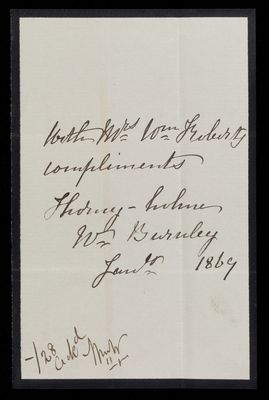 With Mrs Wm Roberts
compliments
Thorney-holme
Nr Burnley
Jan 1869
-/28